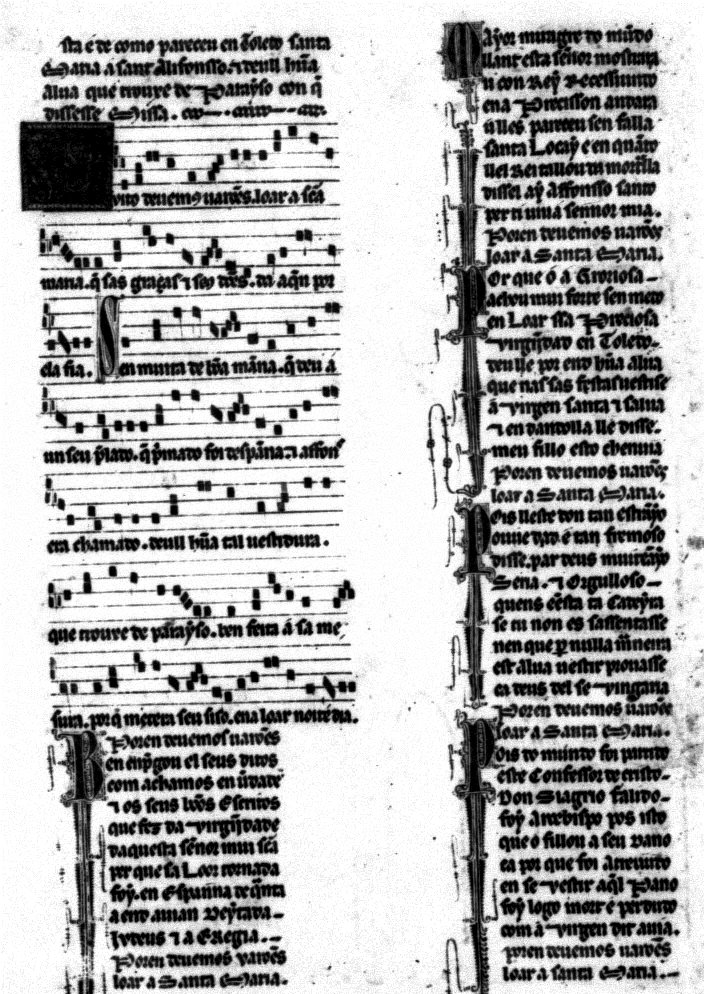 sta é de como pareceu en Toledo santa
Maria a sant Alifonsso. ⁊ deull hũa
alua que trouxe de Parayso con q̃
dissesse Missa.
euto deuemꝯ uarões. loar a sc̃a
maria. q̃ sas graças ⁊ seꝯ dões. da a quen por
ela fia. Sen muita de bõa mãna. q̃ deu a
un seu p̃lado. q̃ p̃mado foi despãna. ⁊ affonſ
era chamado. deull hũa tal uestidura.
que trouxe de parayso. ben feita á sa me
sura. por q̃ metera seu siso. ena loar noite dia.
Poren deuemos uarões
Ben enp̃gou el seus ditos
com achamos en u̾dade
⁊ os seus bõos Escritos
que fez da virgĩjdade
daquesta señor mui sc̃a
per que sa Loor tornada
foy. en Espanna de q̃nta
a end auian deytada
Iudeus ⁊ a Eregia.
Poren deuemos uarões
loar a Santa Maria.
Mayor miragre do mũdo
llant esta señor mostrara
u con Rey Recessiundo
ena Procisson andara
u lles pareceu sen falla
santa Locay e en quãto
llel Rei tallou da mortlla
dissel ay Affonsso santo
per ti uiua sennor mia.
Poren deuemos uarões
loar a Santa Maria.
Por que o a Groriosa
achou mui forte sen medo
en Loar ssa Preciosa
virgĩjdad en Toledo.
deulle por end hũa alua
que nas sas festas uestisse
a virgen santa ⁊ salua
⁊ en dandolla lle disse.
meu fillo esto chenuia
Poren deuemos uarões
loar a Santa Maria.
Pois lleste don tan estrãyo
ouue dado e tan fremoso
disse. par deus muit eãyo
Sena. ⁊ Orgulloso
quens eesta ta Cadeyra
se tu non es sassentasse
nen que ꝑ nulla mãneira
est alua uestir prouasse
ca deus del se vingaria
Poren deuemos uarões
loar a Santa Maria.
Pois do mundo foi partido
este Confessor de cristo
Don Siagrio falido
foy Arcebispo pos isto
que o fillou a seu dano
ca por que foi atreuudo
en se vestir aq̃l Pano
foy logo mort e perdudo
com a virgen dit auia.
poren deuemos uarões
loar a santa Maria.